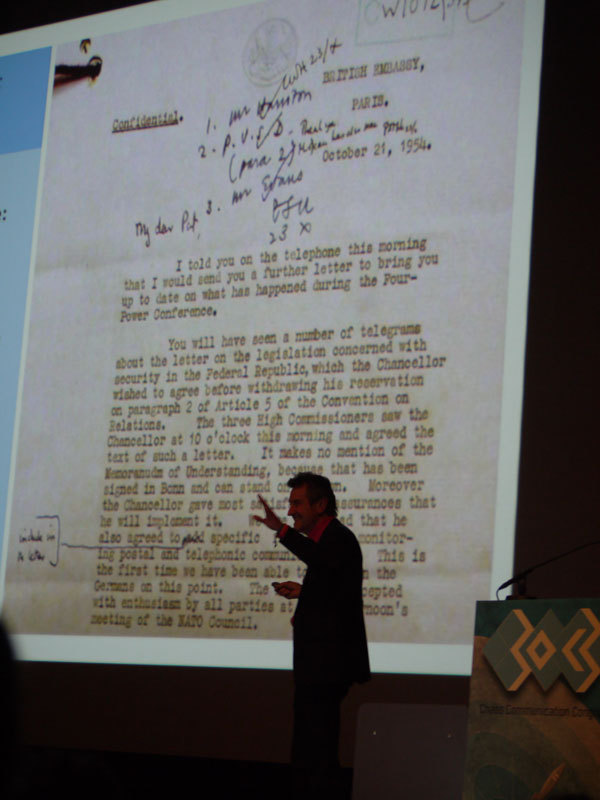 CWH 23/x
BRITISH EMBASSY,
PARIS.
October 21, 1954.
Confidential.
1. Mr Harrison
2. P.U.S.D.
(para 2)
3. Mr Evans
23 X
My dear Pat,
I told you on the telephone this morning
that I would send you a further letter to bring you
up to date on what has happened during the Four-
Power Conference.
You will have seen a number of telegrams
about the letter on the legislation concerned with
security in the Federal Republic, which the Chancellor
wished to agree before withdrawing his reservation
on paragraph 2 of Article 5 of the Convention on
Relations. The three High Commissioners saw the
Chancellor at 10 o'clock this morning and agreed the
text of such a letter. It makes no mention of the
Memoranudm of Understanding, because that has been
signed in Bonn and can stand on Moreover
the Chancellor gave most assurances that
he will implement it. that he
also agreed to specific monitor-
ing postal and telephonic This is
the first time we have been able to the
Germans on this point. The
with enthusiasm by all parties at
meeting of the NATO Council.
include in
letter
30C3
Chaos Communication